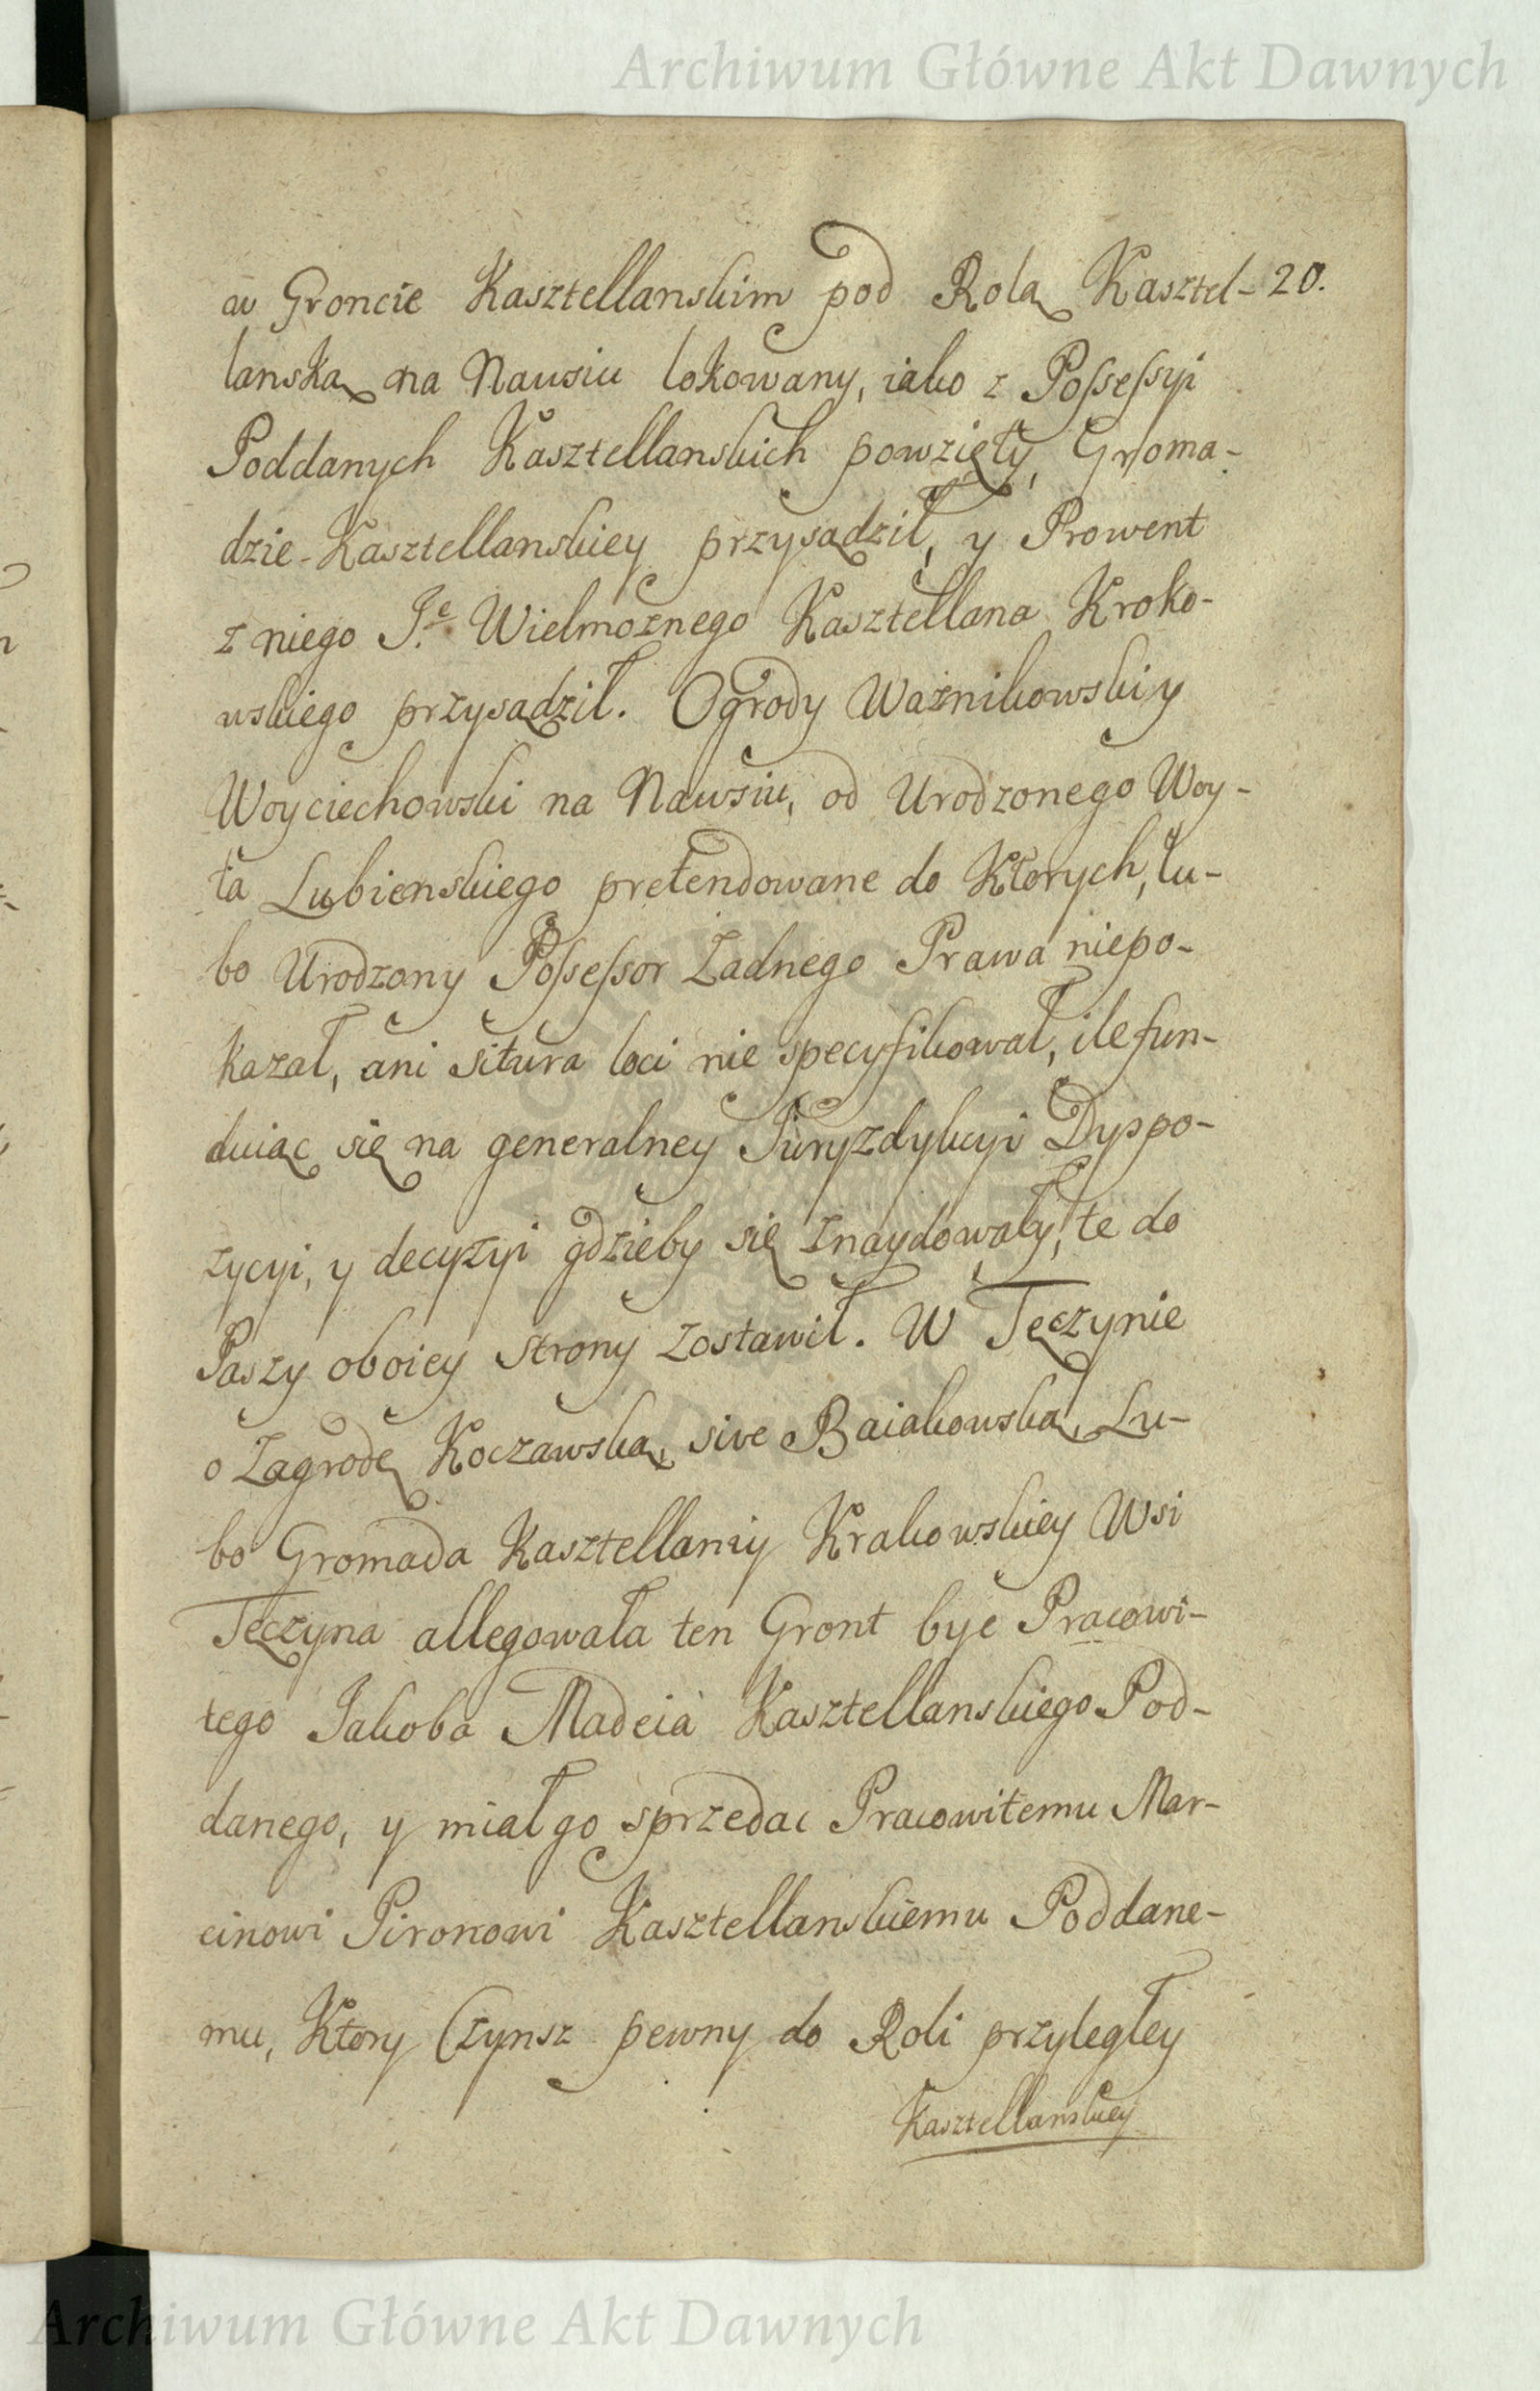 Archiwum Główne Akt Dawnych
w Groncie Kasztellanskim pod Rolą Kasztel- 20.
lanską na Nawsiu lokowany, iako z Possessyi
Poddanych Kasztellanskich powzięty, Groma-
dzie Kasztellanskiey przysądził, y Prowent
z niego J.e Wielmożnego Kasztellana Kroko-
wskiego przysądził. Ogrody Waznikowski y
Woyciechowski na Nawsiu, od Urodzonego Woy-
ta Lubienskiego pretendowane do Ktorych, lu-
bo Urodzony Possessor Żadnego Prawa niepo-
kazał, ani situra loci nie specyfikował, ile fun-
duiąc się na generalney Juryzdykcyi Dyspo-
zycyi, y decyzyi gdzieby się znaydowały, te do
Paszy oboiey strony zostawił. W Tęczynie
o Zagrodę Koczawską, sive Baiakowską, Lu-
bo Gromada Kasztellaniy Krakowskiey Wsi
Tęczyna allegowała ten Gront byc Pracowi-
tego Jakoba Madeia Kasztellanskiego Pod-
danego, y miał go sprzedac Pracowitemu Mar-
cinowi Pironowi Kasztellanskiemu Poddane-
mu, Ktory Czynsz pewny do Roli przyległey
Kasztellanskiey
Archiwum Główne Akt Dawnych